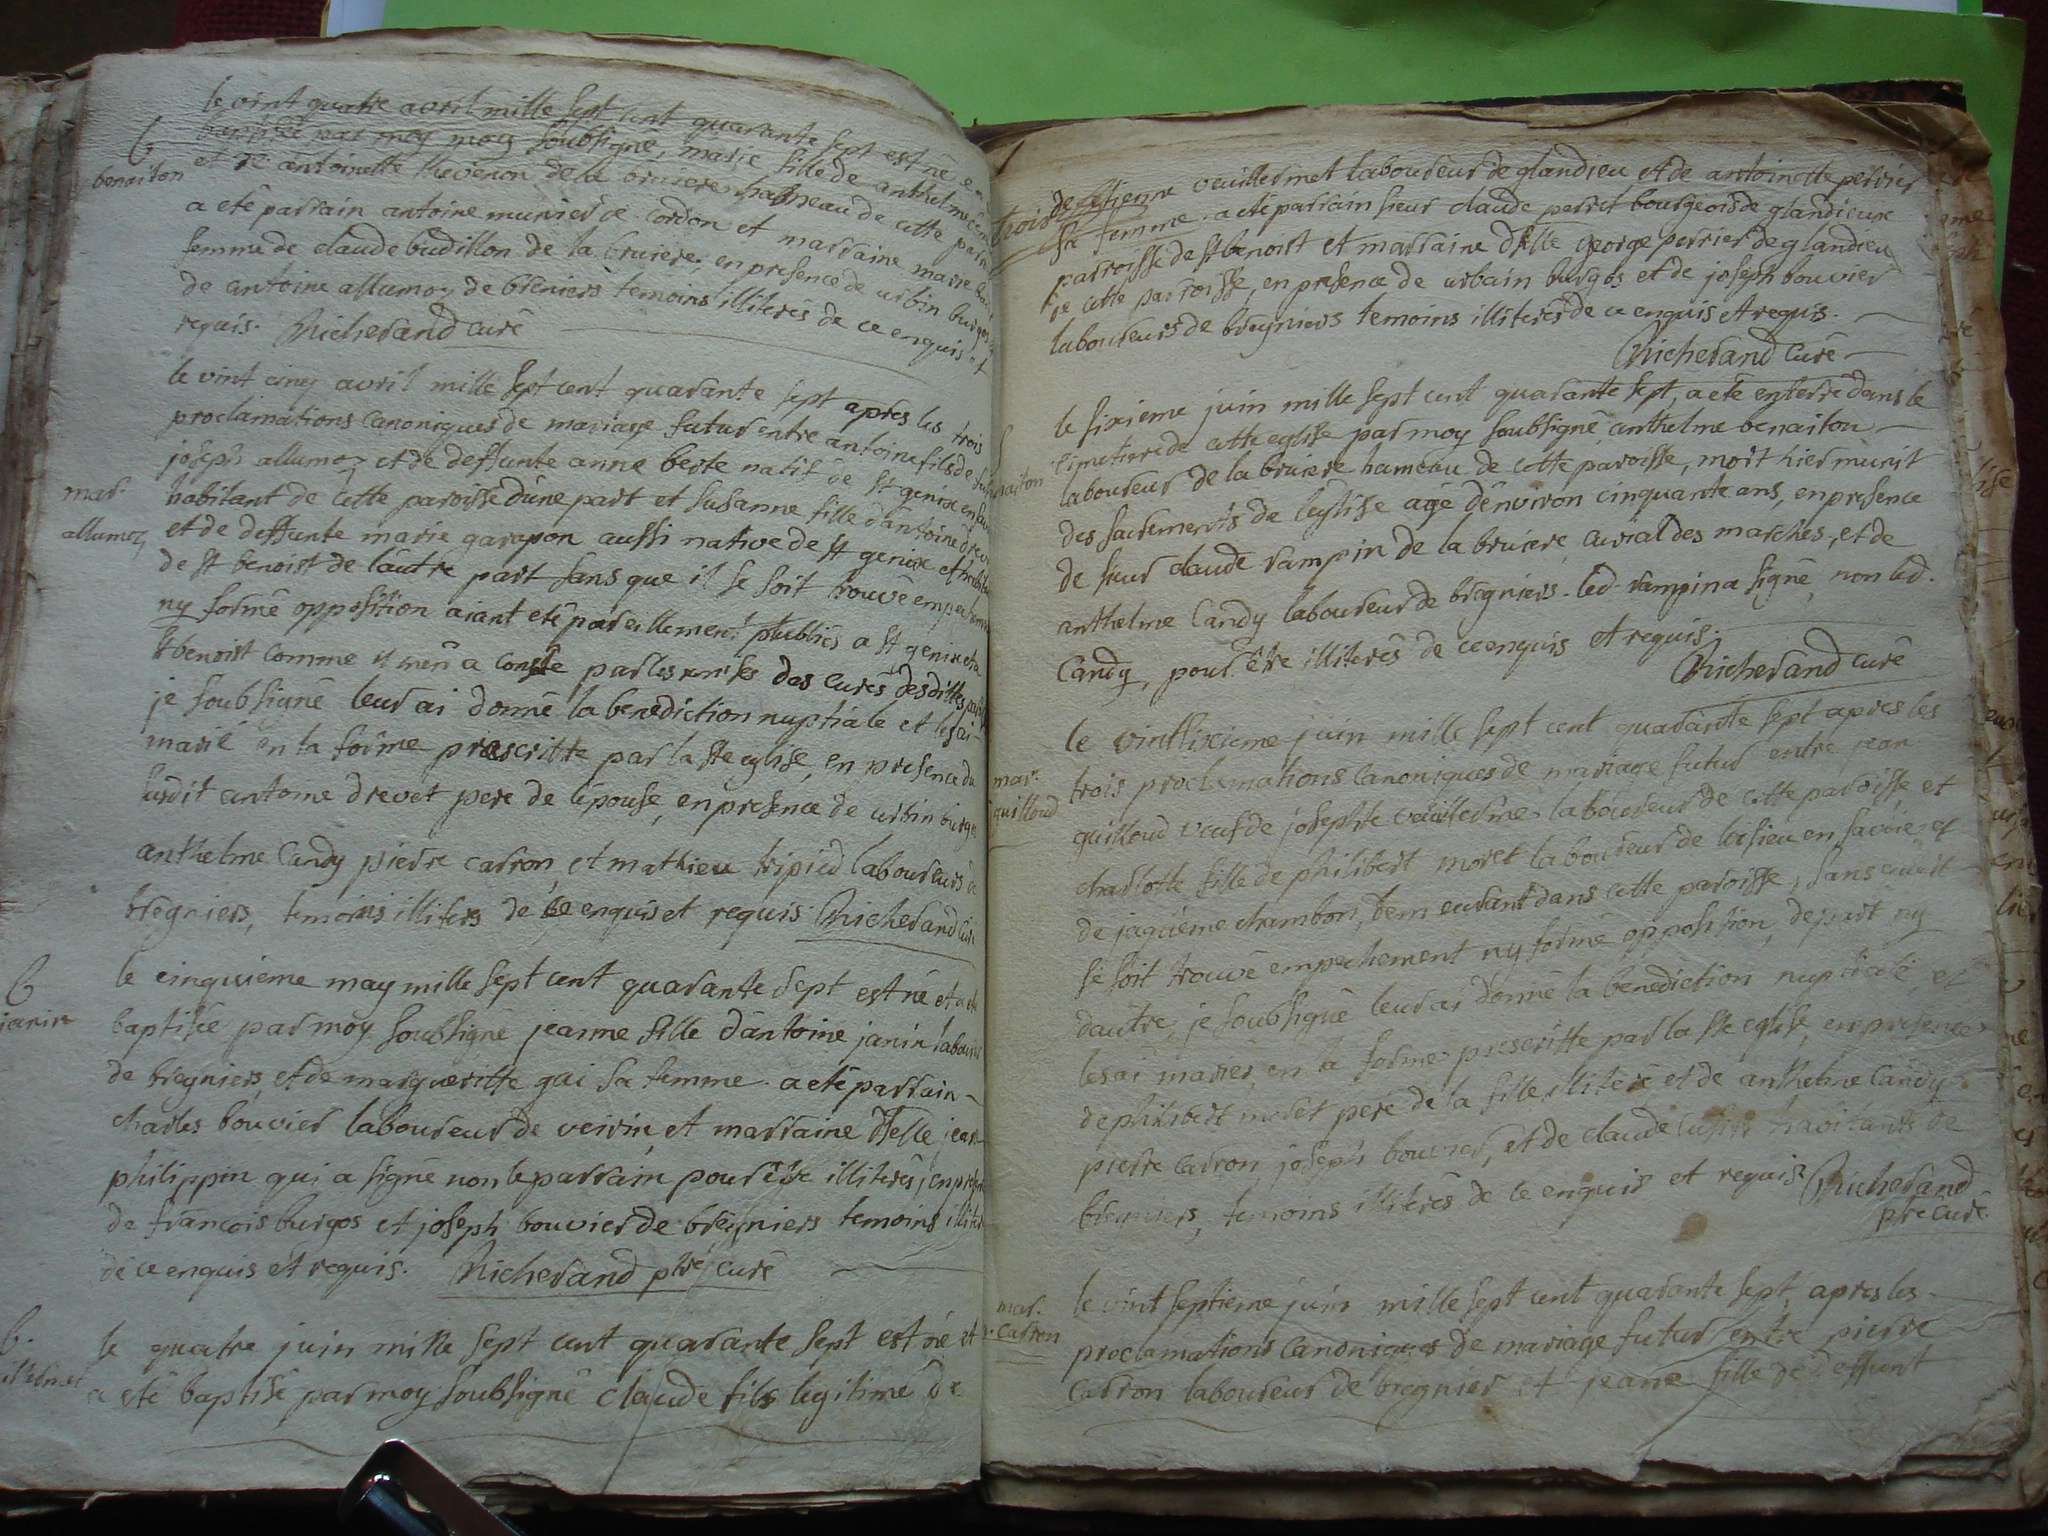 le vint quatre avril mille sept cent quarante sept est né et
baptisée par moy moy soubsigné, marie fille de anthelme
b
benaiton
et de antoinette thevenon de la bruiere hameau de cette
a eté parrain antoine munier de cordon et marraine marie
femme de claude budillon de la bruiere, en presence de urbin burgos
de antoine allumoz de bregniers temoins illiterés de ce enquis et
requis. Richerand curé
le vint cinq avril mille sept cent quarante sept apres les trois
proclamations canoniques de mariage futur entre antoine fils de
joseph allumoz et de deffunte anne beste natif de st genixe en
mar.
habitant de cette paroisse d'une part et susanne fille d'antoine drevet
allumoz
et de deffunte marie garapon aussi native de st genixe et
de st benoist de l'autre part sans que il se soit trouvé
ny formé opposition aiant eté pareillement publiés a st genixe et a
st benoist comme il m'en a consté par les des curés desdittes
je soubsigné leur ai donné la benediction nuptiale et les ai
marié en la forme prascritte par la ste eglise, en presence du
susdit antoine drevet pere de l'épouse, en presence de urbin burgos
anthelme Candy pierre carron et mathieu tripied laboureurs de
bregniers, temoins illiterés de ce enquis et requis. Richerand curé
b
janin
le cinquieme may mille sept cent quarante sept est né et a eté
baptisée par moy soubsigné jeanne fille d'antoine janin laboureur
de bregniers, et de margueritte gai sa femme. a eté parrain
charles bouvier laboureur de veirin, et marraine dlelle
philippin qui a signé non le parrain pour être illiterés, en
de francois burgos et joseph bouvier de bregniers temoins
de ce enquis et requis. Richerand ptre curé
b.
le quatre juin mille sept cent quarante sept est né et
a eté baptisé par moy soubsigné claude fils legitime de
de etienne veuillermet laboureur de glandieu et de antoinette perrier
sa femme. a eté parrain sieur claude perret bourgeois de glandieu
parroisse de st benoist et marraine dlle george perrier de glandieu
de cette parroisse, en presence de urbain burgos et de joseph bouvier
laboureurs de bregniers temoins illiterés de ce enquis et requis.
Richerand curé
le sixieme juin mille sept cent quarante sept, a eté enterré dans le
cimetiere de cette eglise par moy soubsigné anthelme benaiton
laboureur de la bruiere hameau de cette paroisse, mort hier munit
des sacrements de l'eglise agé d'environ cinquante ans, en presence
de sieur claude rampin de la bruiere, curial des marches, et de
anthelme Candy laboureur de bregniers. led. rampin a signé, non led.
Candy, pour être illiterés de ce enquis et requis.
Richerand curé
le vintsixieme juin mille sept cent quarante sept apres les
mar.
trois proclamations canoniques de mariage futur entre jean
quilloud
quilloud veuf de josephte veuillerme laboureur de cette paroisse et
charlotte fille de philibert moret laboureur de en savoie et
de jaquème chambon, demeurant dans cette paroisse, sans
se soit trouvé empechement ny formé opposition, de part ny
d'autre, je soubsigné leur ai donné la benediction nuptiale, et
les ai mariés en la forme prescritte par la ste eglise, en presence
de philibert moret pere de la fille illiteré et de anthelme Candy
pierre carron, joseph bouvier, et de claude habitants de
bregniers, temoins illiterés de ce enquis et requis. Richerand
ptre curé.
mar.
carron
le vint septieme juin mille sept cent quarante sept, apres les
proclamations canoniques de mariage futur entre pierre
carron laboureur de bregnier et jeane fille de deffunt